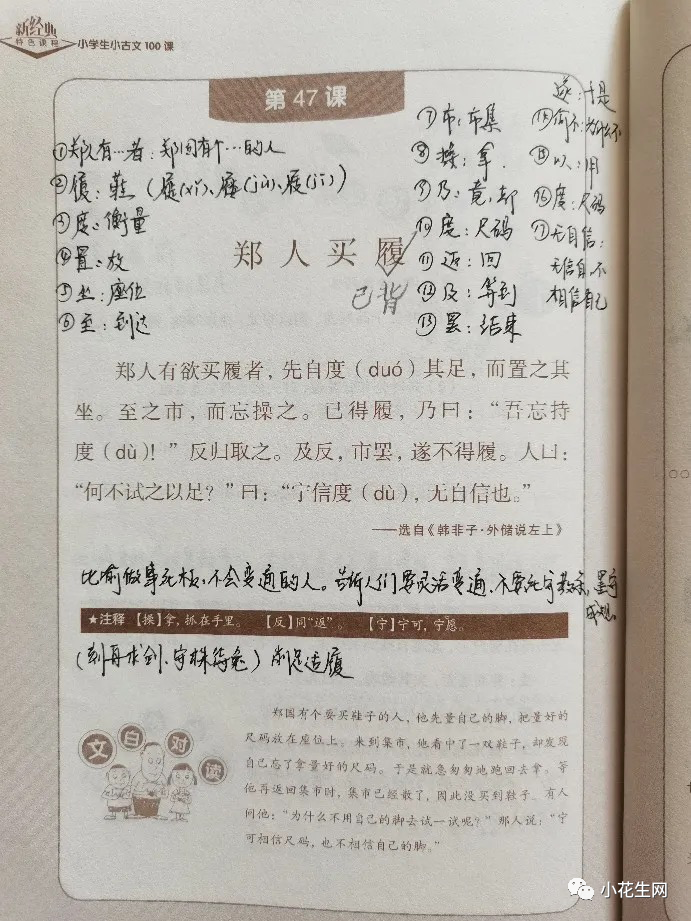 新经典
特色课程
小学生小古文100课
第47课
①郑人有…者：郑国有个…的人
②履：鞋（屣(xǐ)、屦(jù)、屐(jī)）
③度：衡量
④置：放
⑤坐：座位
⑥至：到达
⑦市：市集
⑧操：拿
⑨乃：竟，却
⑩度：尺码
⑪返：回
⑫及：等到
⑬罢：结束
遂：于是
⑭何不：为什么不
⑮以：用
⑯度：尺码
⑰无自信：
无信自，不
相信自己
郑人买履
已背
郑人有欲买履者，先自度（duó）其足，而置之其
坐。至之市，而忘操之。已得履，乃曰：“吾忘持
度（dù）！”反归取之。及反，市罢，遂不得履。人曰：
“何不试之以足？”曰：“宁信度（dù），无自信也。”
——选自《韩非子·外储说左上》
比喻做事死板、不会变通的人。告诉人们要灵活变通、不要死守教条，墨守
成规。
★注释 【操】拿，抓在手里。 【反】同“返”。 【宁】宁可，宁愿。
（刻舟求剑、守株待兔）削足适履
文白对读
郑国有个要买鞋子的人，他先量自己的脚，把量好的
尺码放在座位上。来到集市，他看中了一双鞋子，却发现
自己忘了拿量好的尺码。于是就急匆匆地跑回去拿。等
他再返回集市时，集市已经散了，因此没买到鞋子。有人
问他：“为什么不用自己的脚去试一试呢？”那人说：“宁
可相信尺码，也不相信自己的脚。”
小花生网